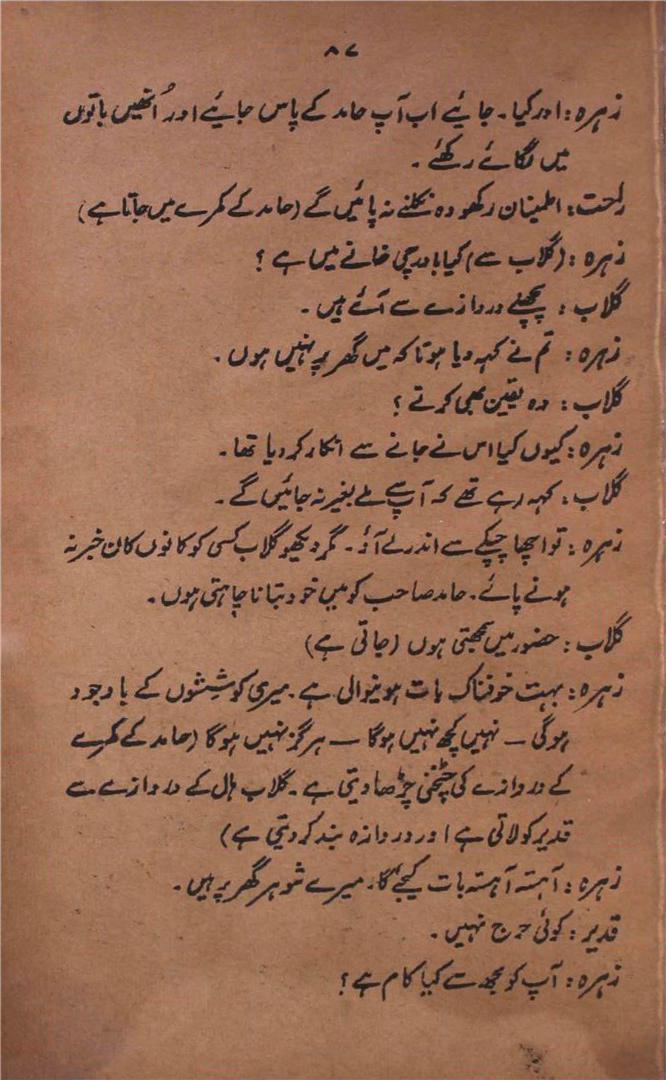 ۸۷
زہرہ : اور کیا۔ جائیے اب آپ حامد کے پاس جائیے اور اُنھیں باتوں
میں لگائے رکھئے۔
راحت : اطمینان رکھو وہ نکلنے نہ پائیں گے (حامد کے کمرے میں جاتا ہے)
زہرہ : (گلاب سے) کیا باورچی خانے میں ہے ؟
گلاب : پچھلے دروازے سے آئے ہیں۔
زہرہ : تم نے کہہ دیا ہوتا کہ میں گھر پر نہیں ہوں۔
گلاب : وہ یقین بھی کرتے ؟
زہرہ : کیوں کیا اس نے جانے سے انکار کر دیا تھا۔
گلاب : کہہ رہے تھے کہ آپ سے ملے بغیر نہ جائیں گے۔
زہرہ : تو اچھا چپکے سے اندر لے آؤ۔ مگر دیکھو گلاب کسی کو کانوں کان خبر نہ
ہونے پائے۔ حامد صاحب کو میں خود بتانا چاہتی ہوں۔
گلاب : حضور میں سمجھتی ہوں (جاتی ہے)
زہرہ : بہت خوفناک بات ہونیوالی ہے۔ میری کوششوں کے باوجود
ہوگی — نہیں کچھ نہیں ہوگا — ہرگز نہیں ہوگا (حامد کے کمرے
کے دروازے کی چٹخنی چڑھا دیتی ہے۔ گلاب ہال کے دروازے سے
قدیر کو لاتی ہے اور دروازہ بند کر دیتی ہے)
زہرہ : آہستہ آہستہ بات کیجے گا، میرے شوہر گھر پر ہیں۔
قدیر : کوئی حرج نہیں۔
زہرہ : آپ کو مجھ سے کیا کام ہے ؟